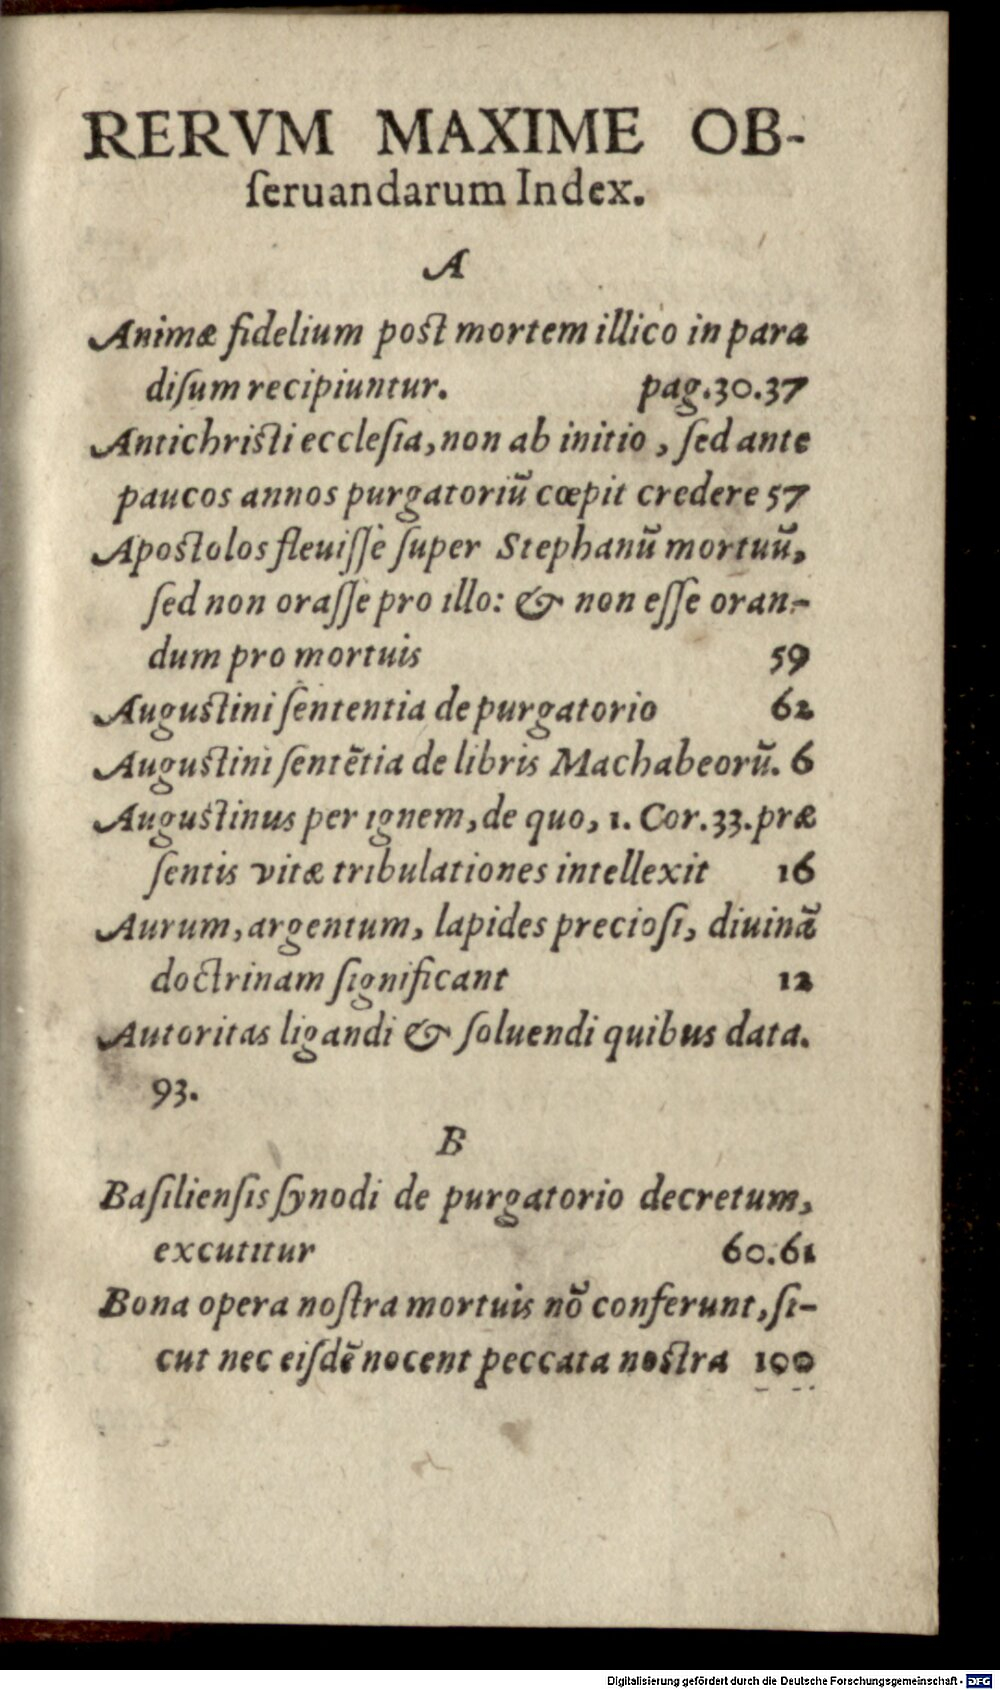 RERVM MAXIME OB-
ſeruandarum Index.
A
Animæ fidelium post mortem illico in para
diſum recipiuntur. pag.30.37
Antichristi eccleſia, non ab initio, ſed ante
paucos annos purgatoriū cœpit credere 57
Apostolos fleuiſſe ſuper Stephanū mortuū,
ſed non oraſſe pro illo: & non eſſe oran-
dum pro mortuis 59
Augustini ſententia de purgatorio 62
Augustini ſentētia de libris Machabeorū. 6
Augustinus per ignem, de quo, 1. Cor.33.præ
ſentis vitæ tribulationes intellexit 16
Aurum, argentum, lapides precioſi, diuinā
doctrinam ſignificant 12
Autoritas ligandi & ſoluendi quibus data.
93.
B
Baſilienſis ſynodi de purgatorio decretum,
excutitur 60.61
Bona opera noſtra mortuis nō conferunt, ſi-
cut nec eiſdē nocent peccata nostra 100
Digitalisierung gefördert durch die Deutsche Forschungsgemeinschaft - DFG